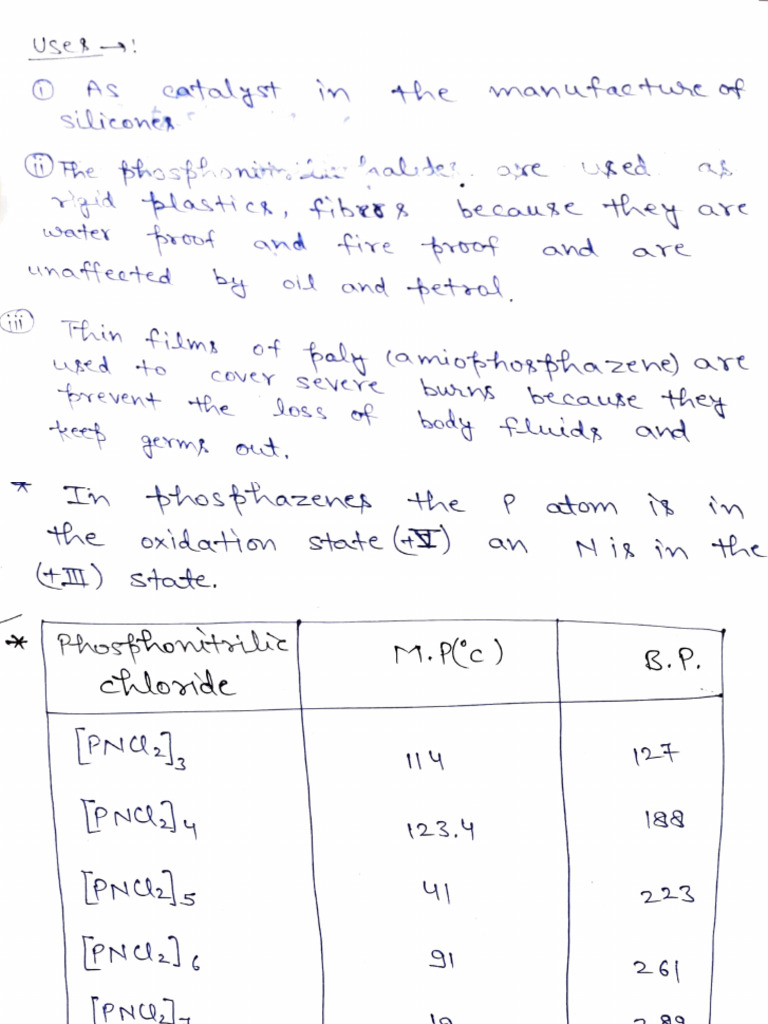 Uses →:
① As catalyst in the manufacture of
silicones
ⅱ The phosphonitrilic halides are used as
rigid plastics, fibers because they are
water proof and fire proof and are
unaffected by oil and petral.
ⅲ Thin films of paly (amiophosphazene) are
used to cover severe burns because they
prevent the loss of body fluids and
keep germs out.
* In phosphazenes the P atom is in
the oxidation state (+V) an N is in the
(+III) state.
* Phosphonitrilic chloride M.P(°c) B.P.
[PNCl2]3 114 127
[PNCl2]4 123.4 188
[PNCl2]5 41 223
[PNCl2]6 91 261
[PNCl2]